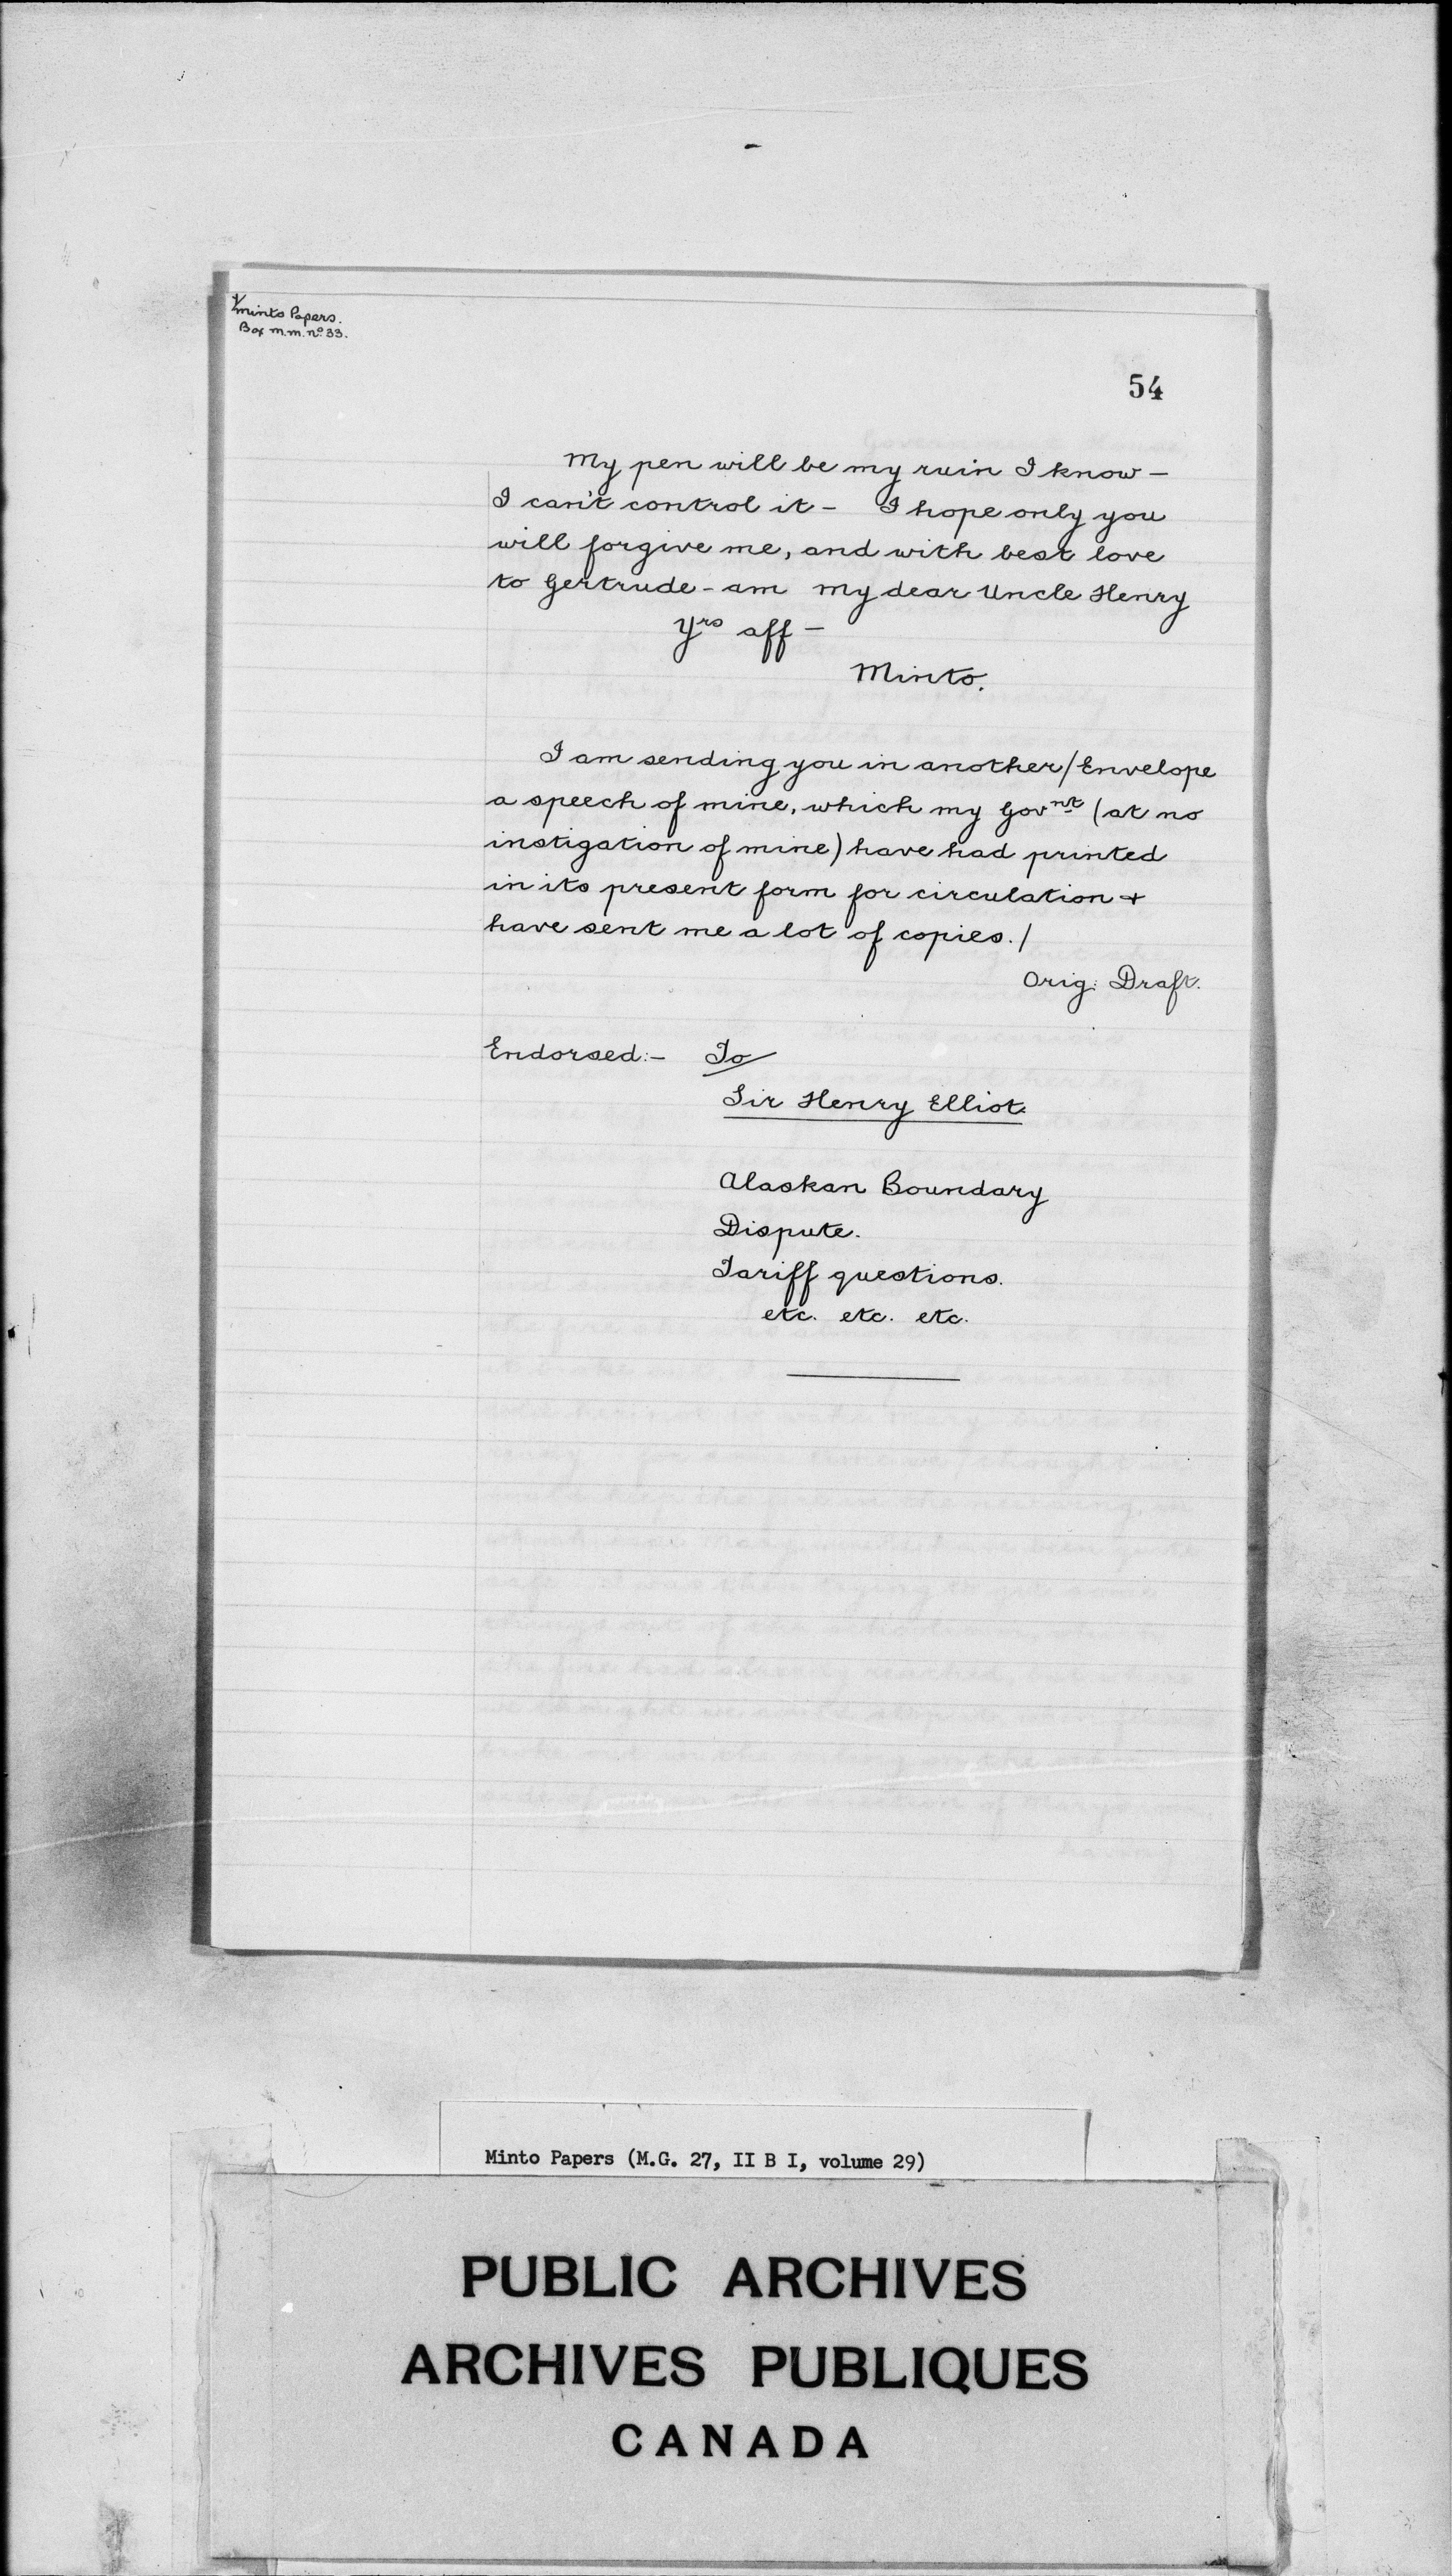 Minto Papers.
Box m.m. nº 33.
54
My pen will be my ruin I know —
I can't control it — I hope only you
will forgive me, and with best love
to Gertrude - am my dear Uncle Henry
Yrs aff —
Minto.
I am sending you in another/Envelope
a speech of mine, which my Govnt (at no
instigation of mine) have had printed
in its present form for circulation +
have sent me a lot of copies./
Orig: Draft.
Endorsed:— To
Sir Henry Elliot.
Alaskan Boundary
Dispute.
Tariff questions.
etc. etc. etc.
Minto Papers (M.G. 27, II B I, volume 29)
PUBLIC ARCHIVES
ARCHIVES PUBLIQUES
CANADA